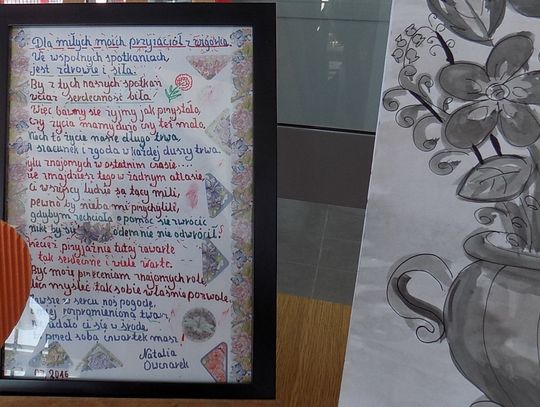 Dla miłych moich przyjaciół z wigorka.
We wspólnych spotkaniach,
jest zdrowie i siła.
By z tych naszych spotkań
wciąż serdeczność biła.
Więc bawmy się żyjmy jak przystało,
czy życia mamy dużo czy też mało.
Niech to życie nasze długo trwa,
A szacunek i zgoda w każdej duszy trwa.
tylu znajomych w ostatnim czasie....
nie znajdziesz tego w żadnym atlasie,
ci wszyscy ludzie są tacy mili,
pewno by nieba mi przychylili,
gdybym zechciała o pomoc się zwrócić
nikt by się odemnie nie odwrócił!
Przecież przyjaźnie tutaj zawarte
są tak serdeczne i wiele warte.
Być może pomieniam znajomych rolę,
lecz myśleć tak sobie właśnie pozwolę.
Zawsze w sercu noś pogodę,
rozpromienioną twarz
dało ci się w środę
przed sobą czwartek masz!
Natalia
Owczarek
2016